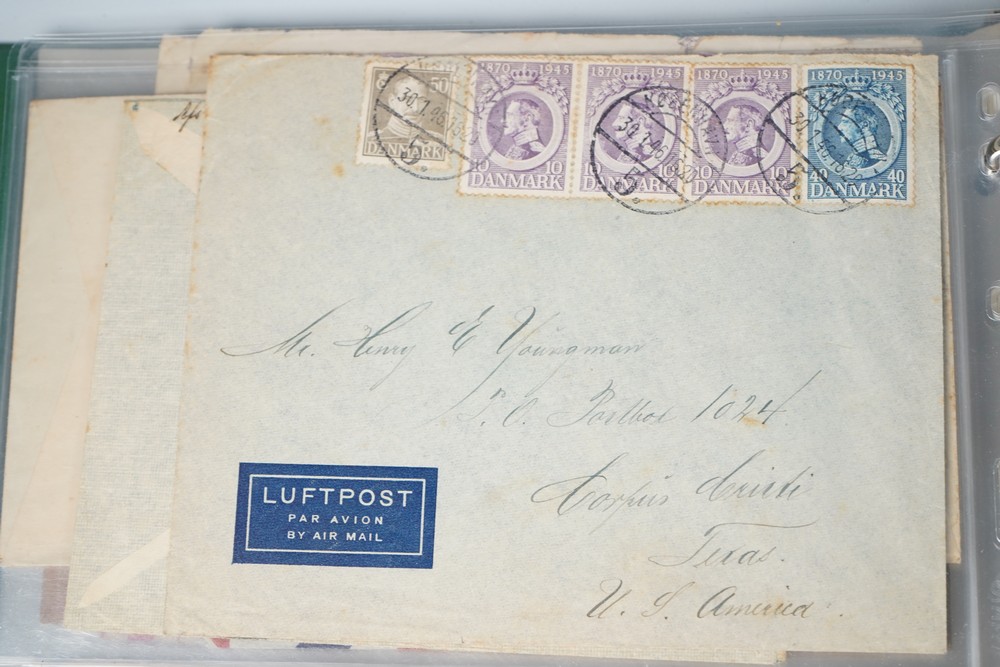 50
DANMARK
1870 1945
10 10
DANMARK
1870 1945
10
DANMARK
1870 1945
10 10
DANMARK
1870 1945
40 40
DANMARK
30.1.46
5
30.1.46
5
30.1.46
5
Mr. Henry E Youngman
P.O. Postbox 1024.
Corpus Cristi
Texas.
U. S. America.
LUFTPOST
PAR AVION
BY AIR MAIL